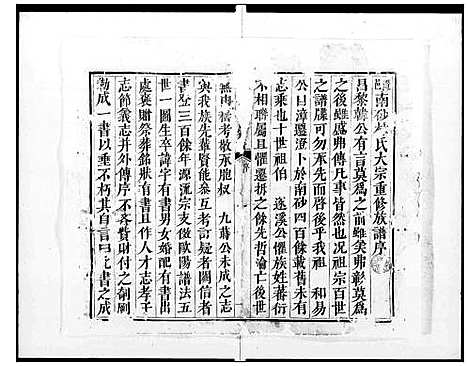 南砂林氏大宗重修族譜序
昌黎韓公有言莫為之前雖美弗彰莫為
之後雖盛弗傳凡事皆然也况祖宗百世
之譜牒可勿承先而啓後乎我祖 和易
公曰漳遷澄卜於南砂四百餘載舊未有
志乘也十世祖伯 遂溪公懼族姓蕃衍
不相聯屬且懼遷拆之餘先哲淪亡後世
無由稽考敬承胞叔 九蒔公未成之志
與我族先輩賢能參互考訂疑者闕信者
書登三百餘年源流宗支倣歐陽譜法五
世一圖生卒諱字有書男女婚配有書出
處褒贈祭葬銘狀有書且作人才志孝子
志節義志并外傳序不吝費財付之剞劂
勒成一書以垂不朽其自言曰是書之成